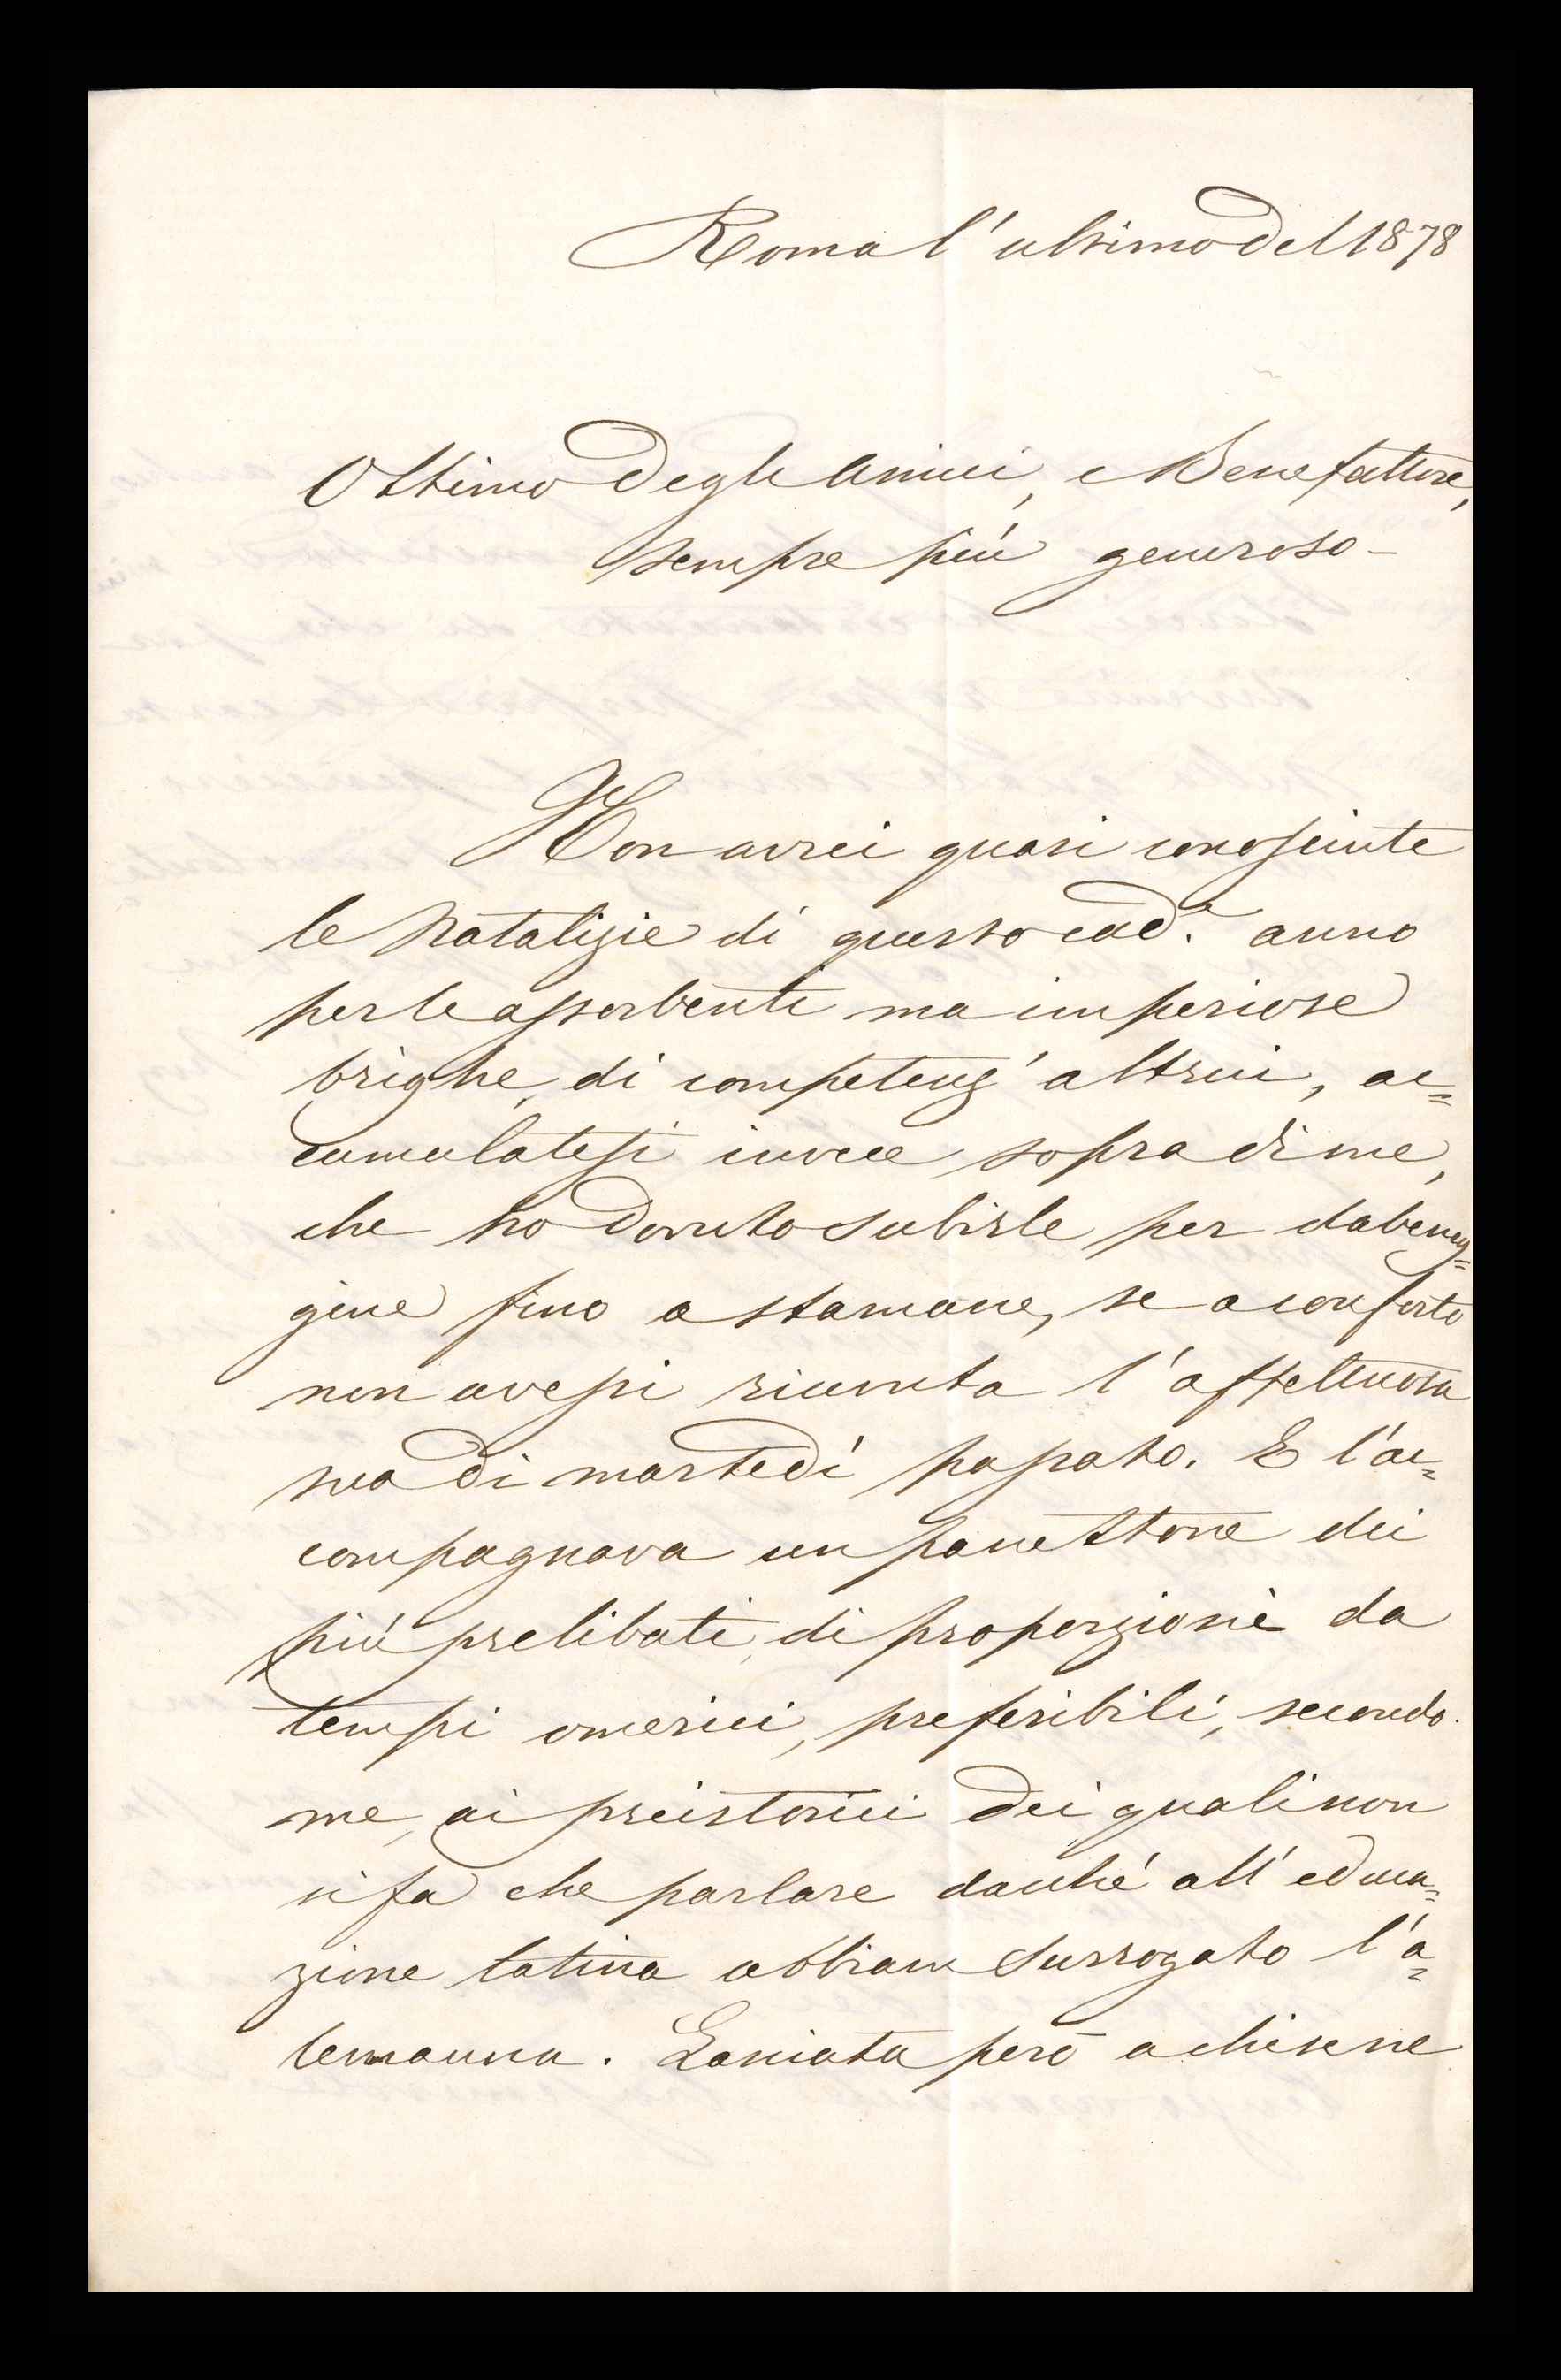 Roma l'ultimo del 1878
Ottimo degli Amici, e Benefattore,
sempre più generoso -
Non avrei quasi conosciute
le Natalizie di questo cad.e anno
per le assorbenti ma imperiose
brighe, di competenz' altrui, ac=
cumulatesi invece sopra di me,
che ho dovuto subirle per dabenag=
gine fino a stamane, se a conforto
non avessi ricevuta l'affettuosa
sua di martedì passato. E l'ac=
compagnava un panettone dei
più prelibati, di proporzioni da
tempi omerici, preferibili, secondo
me, ai preistorici dei quali non
si fa che parlare dacché all' educa=
zione latina abbiam surrogato l'a=
lemanna. Lasciata però a chi se ne